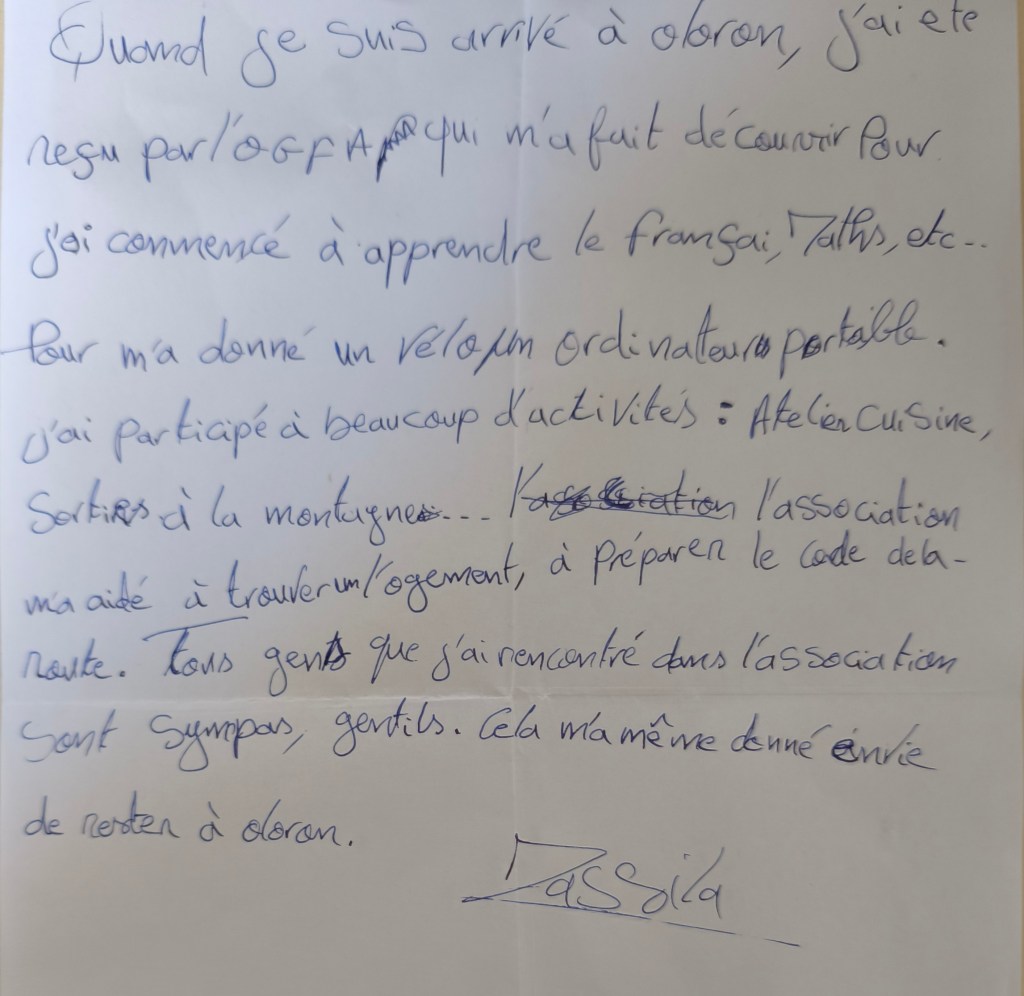 Quand je suis arrivé à oloron, j'ai ete
reçu par l'OGFA qui m'a fait découvrir Pour
j'ai commencé à apprendre le françai, Maths, etc...
Pour m'a donné un vélo un ordinateur portable.
j'ai participé à beaucoup d'activités : Atelier cuisine,
Sorties à la montagne... l'association l'association
m'a aidé à trouver un logement, à préparer le code de la-
route. Tous gens que j'ai rencontré dans l'association
sont sympas, gentils. Cela m'a même donné envie
de rester à oloron.
Massila